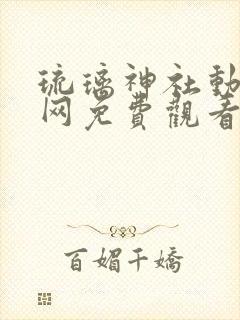 琉璃神社動
网免費觀看
百媚千嬌